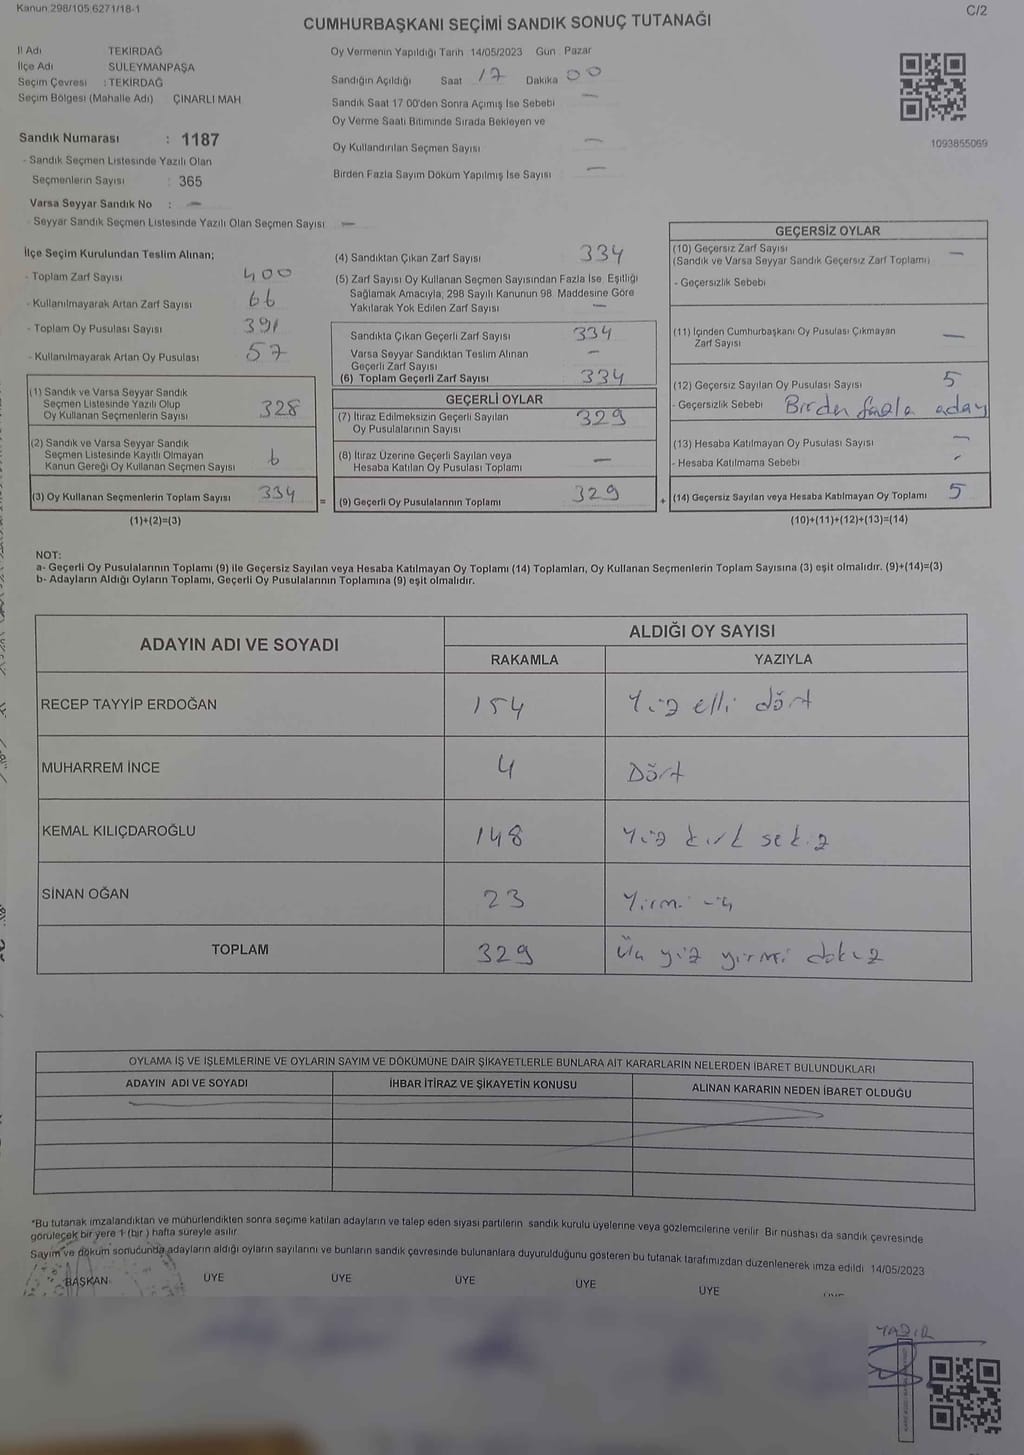 Kanun 298/105,6271/18-1
C/2
CUMHURBAŞKANI SEÇİMİ SANDIK SONUÇ TUTANAĞI
İl Adı TEKİRDAĞ
İlçe Adı SÜLEYMANPAŞA
Seçim Çevresi : TEKİRDAĞ
Seçim Bölgesi (Mahalle Adı) ÇINARLI MAH
Sandık Numarası : 1187
- Sandık Seçmen Listesinde Yazılı Olan
Seçmenlerin Sayısı : 365
Varsa Seyyar Sandık No : —
- Seyyar Sandık Seçmen Listesinde Yazılı Olan Seçmen Sayısı —
Oy Vermenin Yapıldığı Tarih 14/05/2023 Gün : Pazar
Sandığın Açıldığı Saat 17 Dakika 00
Sandık Saat 17 00'den Sonra Açımış İse Sebebi —
Oy Verme Saati Bitiminde Sırada Bekleyen ve
Oy Kullandırılan Seçmen Sayısı —
Birden Fazla Sayım Döküm Yapılmış İse Sayısı —
1093855069
İlçe Seçim Kurulundan Teslim Alınan;
- Toplam Zarf Sayısı 400
- Kullanılmayarak Artan Zarf Sayısı 66
- Toplam Oy Pusulası Sayısı 391
- Kullanılmayarak Artan Oy Pusulası 57
(1) Sandık ve Varsa Seyyar Sandık
Seçmen Listesinde Yazılı Olup
Oy Kullanan Seçmenlerin Sayısı 328
(2) Sandık ve Varsa Seyyar Sandık
Seçmen Listesinde Kayıtlı Olmayan
Kanun Gereği Oy Kullanan Seçmen Sayısı 6
(3) Oy Kullanan Seçmenlerin Toplam Sayısı 334 =
(1)+(2)=(3)
(4) Sandıktan Çıkan Zarf Sayısı 334
(5) Zarf Sayısı Oy Kullanan Seçmen Sayısından Fazla İse, Eşitliği
Sağlamak Amacıyla, 298 Sayılı Kanunun 98. Maddesine Göre
Yakılarak Yok Edilen Zarf Sayısı —
Sandıkta Çıkan Geçerli Zarf Sayısı 334
Varsa Seyyar Sandıktan Teslim Alınan
Geçerli Zarf Sayısı —
(6) Toplam Geçerli Zarf Sayısı 334
GEÇERLİ OYLAR
(7) İtiraz Edilmeksizin Geçerli Sayılan
Oy Pusulalarının Sayısı 329
(8) İtiraz Üzerine Geçerli Sayılan veya
Hesaba Katılan Oy Pusulası Toplamı —
(9) Geçerli Oy Pusulalarının Toplamı 329 +
GEÇERSİZ OYLAR
(10) Geçersiz Zarf Sayısı —
(Sandık ve Varsa Seyyar Sandık Geçersiz Zarf Toplamı)
- Geçersizlik Sebebi
(11) İçinden Cumhurbaşkanı Oy Pusulası Çıkmayan
Zarf Sayısı —
(12) Geçersiz Sayılan Oy Pusulası Sayısı 5
- Geçersizlik Sebebi Birden fazla aday
(13) Hesaba Katılmayan Oy Pusulası Sayısı —
- Hesaba Katılmama Sebebi -
(14) Geçersiz Sayılan veya Hesaba Katılmayan Oy Toplamı 5
(10)+(11)+(12)+(13)=(14)
NOT:
a- Geçerli Oy Pusulalarının Toplamı (9) ile Geçersiz Sayılan veya Hesaba Katılmayan Oy Toplamı (14) Toplamları, Oy Kullanan Seçmenlerin Toplam Sayısına (3) eşit olmalıdır. (9)+(14)=(3)
b- Adayların Aldığı Oyların Toplamı, Geçerli Oy Pusulalarının Toplamına (9) eşit olmalıdır.
ADAYIN ADI VE SOYADI ALDIĞI OY SAYISI
RAKAMLA YAZIYLA
RECEP TAYYİP ERDOĞAN 154 Yüz elli dört
MUHARREM İNCE 4 Dört
KEMAL KILIÇDAROĞLU 148 Yüz kırk sekiz
SİNAN OĞAN 23 Yirmi üç
TOPLAM 329 Üç yüz yirmi dokuz
OYLAMA İŞ VE İŞLEMLERİNE VE OYLARIN SAYIM VE DÖKÜMÜNE DAİR ŞİKAYETLERLE BUNLARA AİT KARARLARIN NELERDEN İBARET BULUNDUKLARI
ADAYIN ADI VE SOYADI İHBAR İTİRAZ VE ŞİKAYETİN KONUSU ALINAN KARARIN NEDEN İBARET OLDUĞU
*Bu tutanak imzalandıktan ve mühürlendikten sonra seçime katılan adayların ve talep eden siyasi partilerin sandık kurulu üyelerine veya gözlemcilerine verilir Bir nüshası da sandık çevresinde
görülecek bir yere 1 (bir ) hafta süreyle asılır
Sayım ve döküm sonucunda adayların aldığı oyların sayılarını ve bunların sandık çevresinde bulunanlara duyurulduğunu gösteren bu tutanak tarafımızdan düzenlenerek imza edildi 14/05/2023
BAŞKAN ÜYE ÜYE ÜYE ÜYE ÜYE